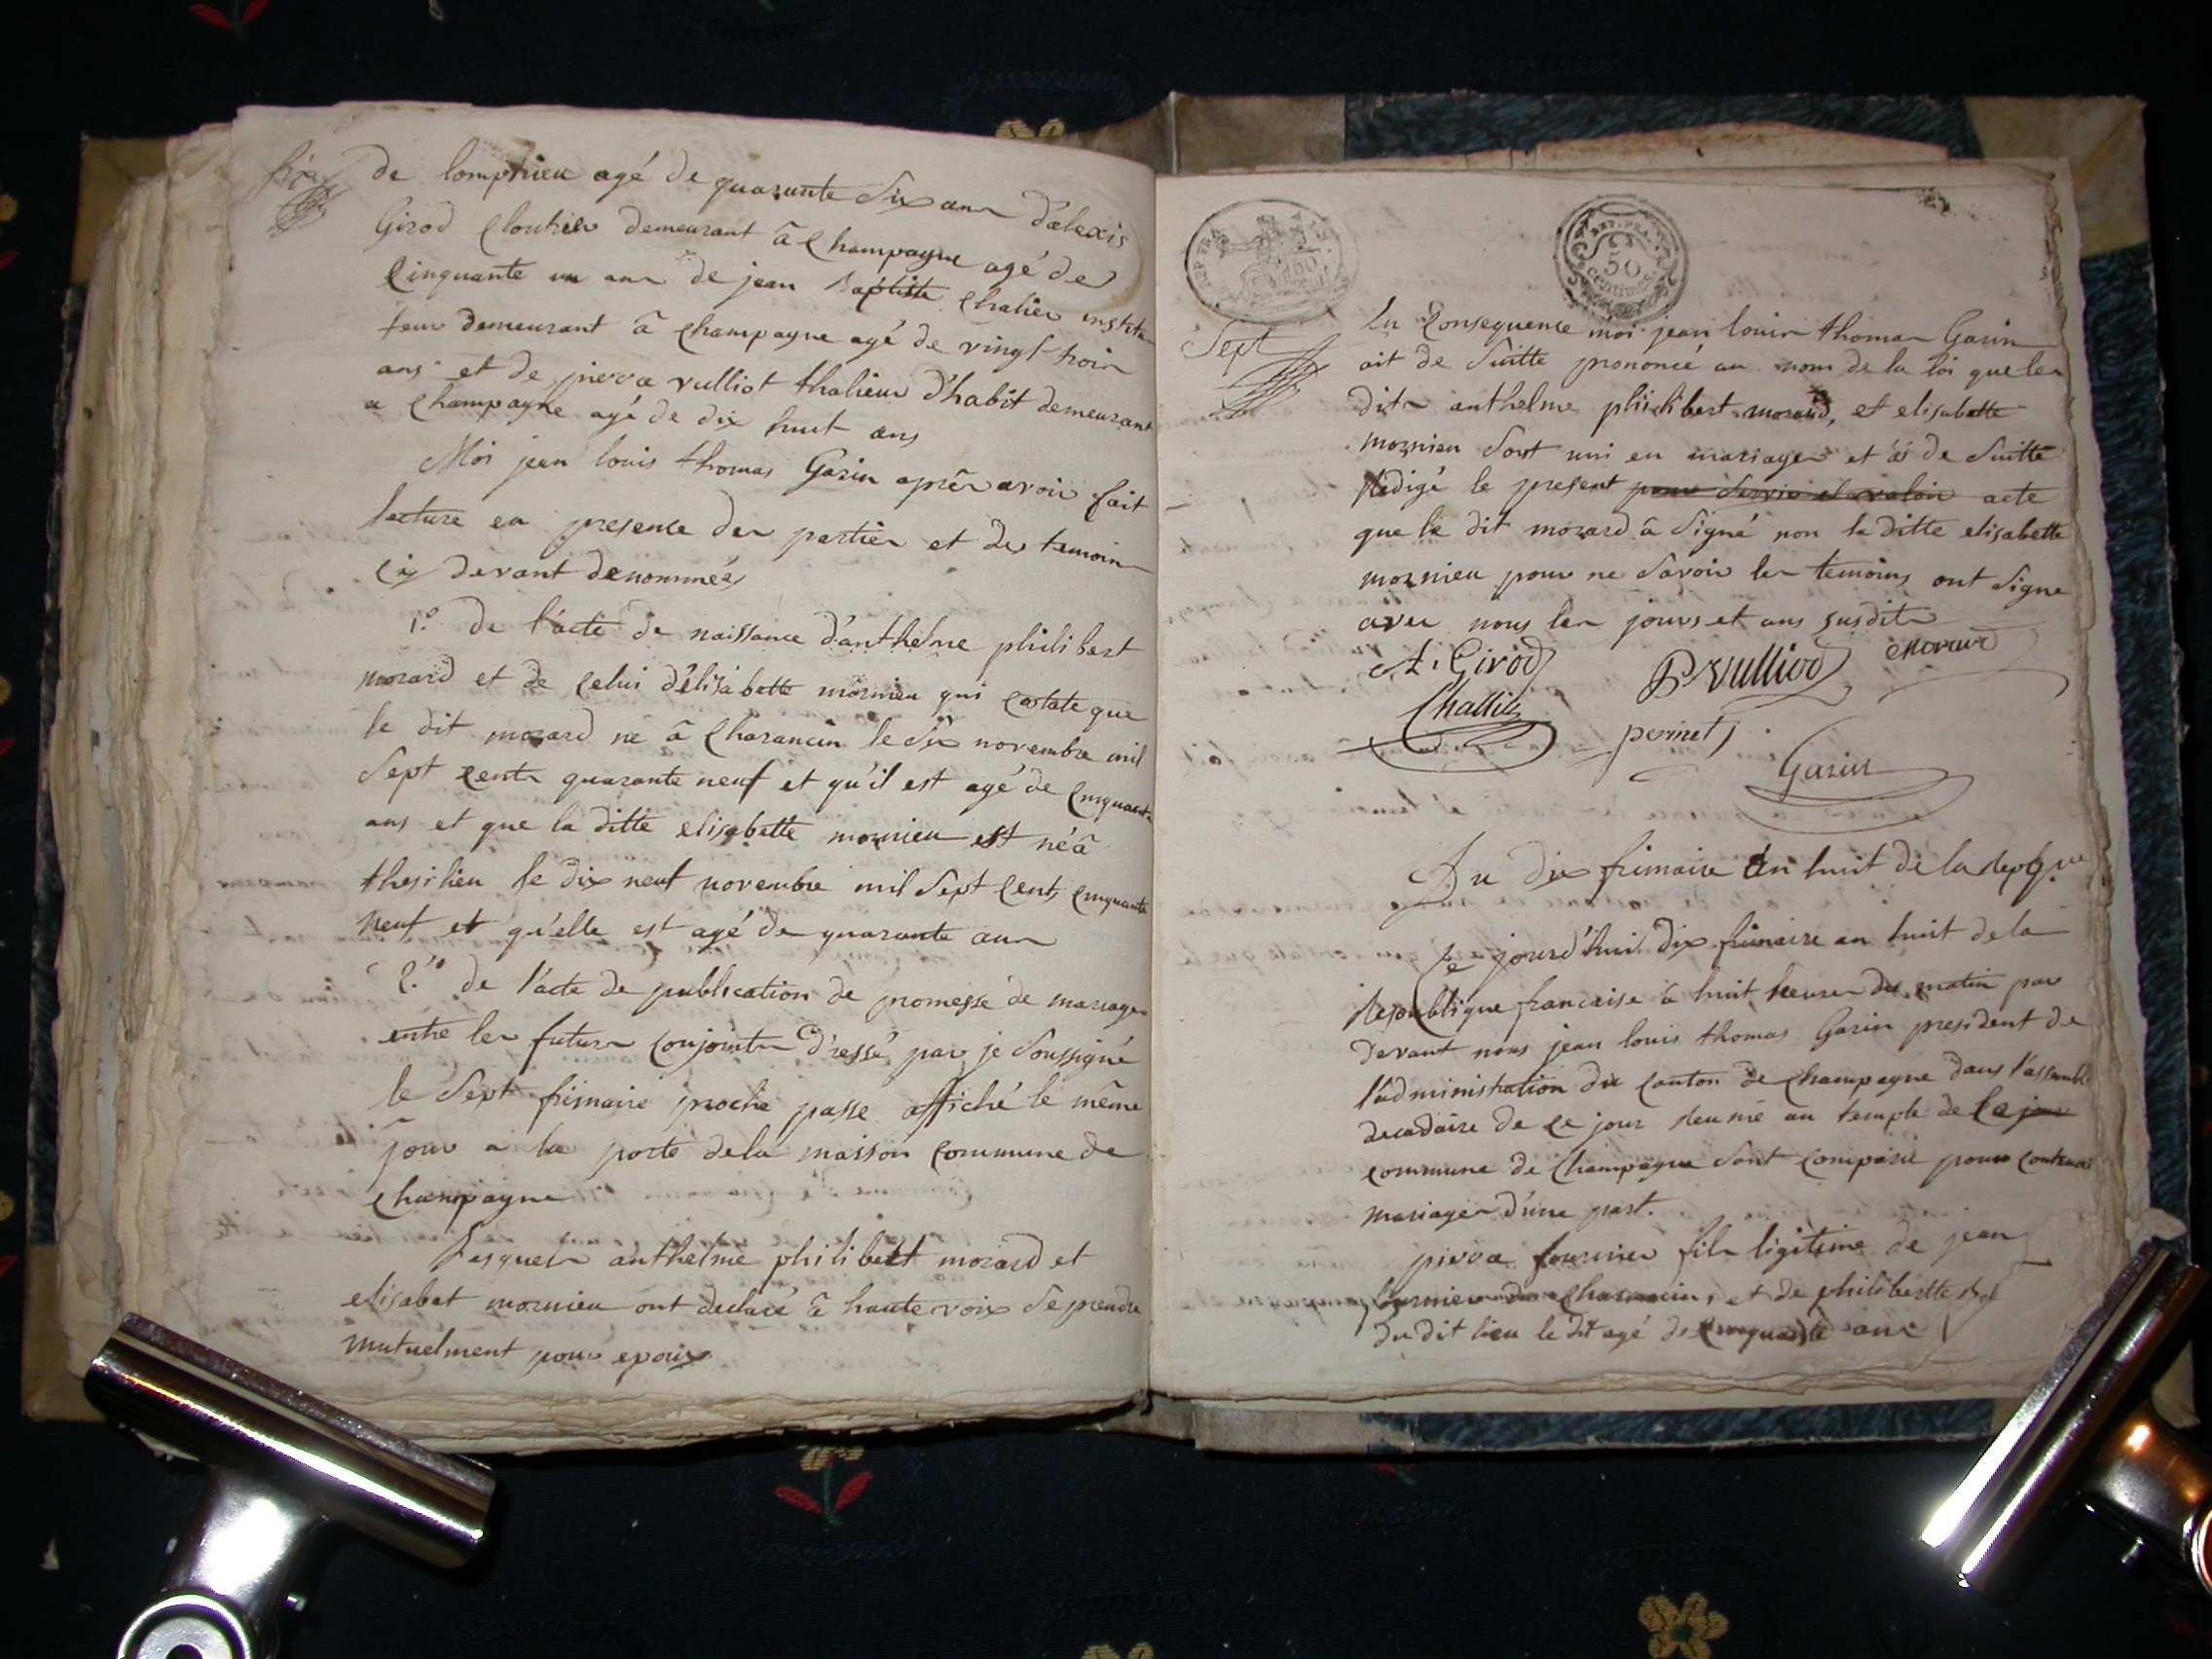 six
de lomphieu agé de quarante six ans d'alexis
Girod cloutier demeurant â Champagne agé de
Cinquante un ans de jean Baptiste Chalier institu
teur demeurant â Champagne agé de vingt trois
ans et de pierre vulliot thalieur d'habit demeurant
a Champagne agé de dix huit ans
Moi jean louis thomas Garin aprês avoir fait
lecture en presence des parties et des temoins
cy devant denommées
1.º de l'acte de naissance d'anthelme philibert
morard et de celui d'élisabette mornieu qui costate que
le dit morard né â Charancin le six novembre mil
Sept cents quarante neuf et qu'il est agé de cinquante
ans et que la ditte elisabette mornieu est né â
thesilieu le dix neuf novembre mil Sept cents cinquante
neuf et qu'elle est agé de quarante ans
2.º de l'acte de publication de promesse de mariages
entre les futurs conjoints dressé par je soussigné
le Sept frimaire proche passe affiché le même
jour a la porte dela maison commune de
Champagne
Lesquels anthelme philibert morard et
elisabet mornieu ont declaré â haute voix se prendre
mutuelment pour epoux
REP. FRA.
REP. FRA.
50
CENTIMES
Sept
En Consequence moi jean louis thomas Garin
ait de Suitte prononcé au nom de la loi que les
dits anthelme philibert morard, et elisabette
mornieu sont uni en mariages et ai de suitte
Redigé le present pour servir et valoir acte
que le dit morard â signé non la ditte elisabette
mornieu pour ne savoir les temoins ont signe
avec nous les jours et ans susdits
A. Girod P. Vulliod Morard
Challier perinet
Garin
Du dix frimaire an huit de la Repq.ue
Ce jourd'huil dix frimaire an huit dela
Republique francaise â huit heures du matin par
devant nous jean louis thomas Garin president de
l'administration du canton de Champagne dans l'assemble
decadaire de ce jour Reunie au temple de ce jour
commune de Champagne sont comparu pour contracter
mariages d'une part.
pierre fournier fils ligitime de jean
fournier de Charancin, et de philibertte
du dit lieu le dit agé de cinquante ans